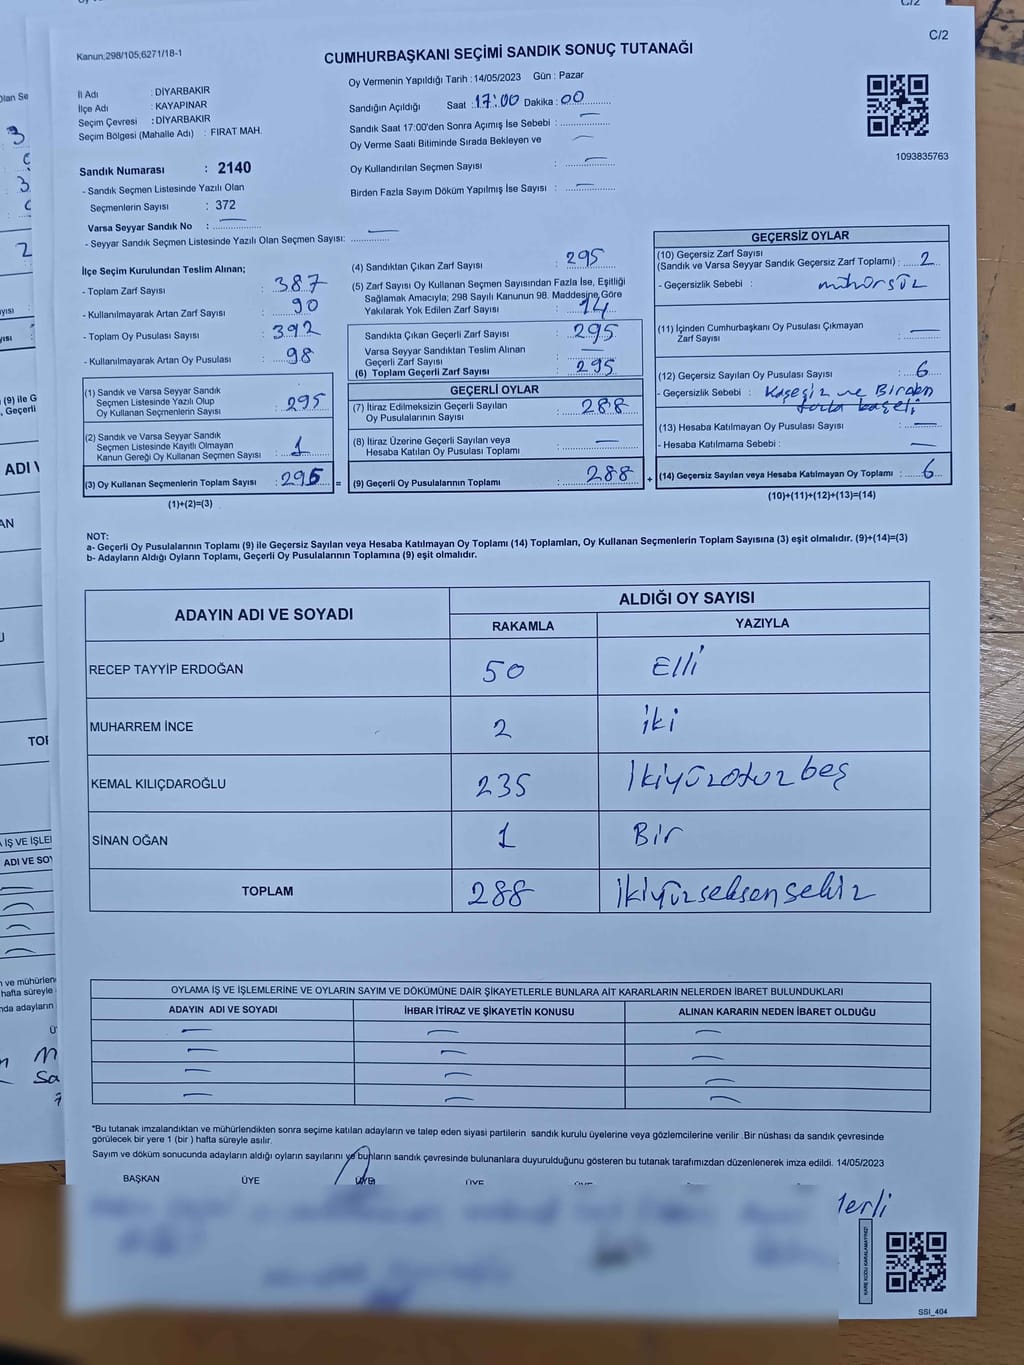 C/2
Kanun:298/105;6271/18-1
CUMHURBAŞKANI SEÇİMİ SANDIK SONUÇ TUTANAĞI
Oy Vermenin Yapıldığı Tarih :14/05/2023 Gün : Pazar
İl Adı : DİYARBAKIR
İlçe Adı : KAYAPINAR
Seçim Çevresi : DİYARBAKIR
Seçim Bölgesi (Mahalle Adı) : FIRAT MAH.
Sandığın Açıldığı Saat : 17:00 Dakika : 00
Sandık Saat 17:00'den Sonra Açımış İse Sebebi : —
Oy Verme Saati Bitiminde Sırada Bekleyen ve —
Oy Kullandırılan Seçmen Sayısı : —
Birden Fazla Sayım Döküm Yapılmış İse Sayısı : —
1093835763
Sandık Numarası : 2140
- Sandık Seçmen Listesinde Yazılı Olan
Seçmenlerin Sayısı : 372
Varsa Seyyar Sandık No : —
- Seyyar Sandık Seçmen Listesinde Yazılı Olan Seçmen Sayısı: —
İlçe Seçim Kurulundan Teslim Alınan;
- Toplam Zarf Sayısı : 387
- Kullanılmayarak Artan Zarf Sayısı : 90
- Toplam Oy Pusulası Sayısı : 392
- Kullanılmayarak Artan Oy Pusulası : 98
(1) Sandık ve Varsa Seyyar Sandık
Seçmen Listesinde Yazılı Olup
Oy Kullanan Seçmenlerin Sayısı : 295
(2) Sandık ve Varsa Seyyar Sandık
Seçmen Listesinde Kayıtlı Olmayan
Kanun Gereği Oy Kullanan Seçmen Sayısı : 1
(3) Oy Kullanan Seçmenlerin Toplam Sayısı : 296 =
(1)+(2)=(3)
(4) Sandıktan Çıkan Zarf Sayısı : 295
(5) Zarf Sayısı Oy Kullanan Seçmen Sayısından Fazla İse, Eşitliği
Sağlamak Amacıyla; 298 Sayılı Kanunun 98. Maddesine Göre
Yakılarak Yok Edilen Zarf Sayısı : 14
Sandıkta Çıkan Geçerli Zarf Sayısı : 295
Varsa Seyyar Sandıktan Teslim Alınan
Geçerli Zarf Sayısı : —
(6) Toplam Geçerli Zarf Sayısı : 295
GEÇERLİ OYLAR
(7) İtiraz Edilmeksizin Geçerli Sayılan
Oy Pusulalarının Sayısı : 288
(8) İtiraz Üzerine Geçerli Sayılan veya
Hesaba Katılan Oy Pusulası Toplamı : —
(9) Geçerli Oy Pusulalarının Toplamı : 288 +
GEÇERSİZ OYLAR
(10) Geçersiz Zarf Sayısı
(Sandık ve Varsa Seyyar Sandık Geçersiz Zarf Toplamı) : 2
- Geçersizlik Sebebi : mühürsüz
(11) İçinden Cumhurbaşkanı Oy Pusulası Çıkmayan
Zarf Sayısı : —
(12) Geçersiz Sayılan Oy Pusulası Sayısı : 6
- Geçersizlik Sebebi : Kaşesiz ve Birden
fazla kaşeli
(13) Hesaba Katılmayan Oy Pusulası Sayısı : —
- Hesaba Katılmama Sebebi : —
(14) Geçersiz Sayılan veya Hesaba Katılmayan Oy Toplamı : 6
(10)+(11)+(12)+(13)=(14)
NOT:
a- Geçerli Oy Pusulalarının Toplamı (9) ile Geçersiz Sayılan veya Hesaba Katılmayan Oy Toplamı (14) Toplamları, Oy Kullanan Seçmenlerin Toplam Sayısına (3) eşit olmalıdır. (9)+(14)=(3)
b- Adayların Aldığı Oyların Toplamı, Geçerli Oy Pusulalarının Toplamına (9) eşit olmalıdır.
ADAYIN ADI VE SOYADI
ALDIĞI OY SAYISI
RAKAMLA YAZIYLA
RECEP TAYYİP ERDOĞAN 50 Elli
MUHARREM İNCE 2 iki
KEMAL KILIÇDAROĞLU 235 İkiyüzotuzbeş
SİNAN OĞAN 1 Bir
TOPLAM 288 ikiyüzseksensekiz
OYLAMA İŞ VE İŞLEMLERİNE VE OYLARIN SAYIM VE DÖKÜMÜNE DAİR ŞİKAYETLERLE BUNLARA AİT KARARLARIN NELERDEN İBARET BULUNDUKLARI
ADAYIN ADI VE SOYADI İHBAR İTİRAZ VE ŞİKAYETİN KONUSU ALINAN KARARIN NEDEN İBARET OLDUĞU
— — —
— — —
— — —
— — —
*Bu tutanak imzalandıktan ve mühürlendikten sonra seçime katılan adayların ve talep eden siyasi partilerin sandık kurulu üyelerine veya gözlemcilerine verilir .Bir nüshası da sandık çevresinde
görülecek bir yere 1 (bir ) hafta süreyle asılır.
Sayım ve döküm sonucunda adayların aldığı oyların sayılarını ve bunların sandık çevresinde bulunanlara duyurulduğunu gösteren bu tutanak tarafımızdan düzenlenerek imza edildi. 14/05/2023
BAŞKAN ÜYE ÜYE ÜYE
KARE KODU KARALAMAYINIZ!
SSI_404